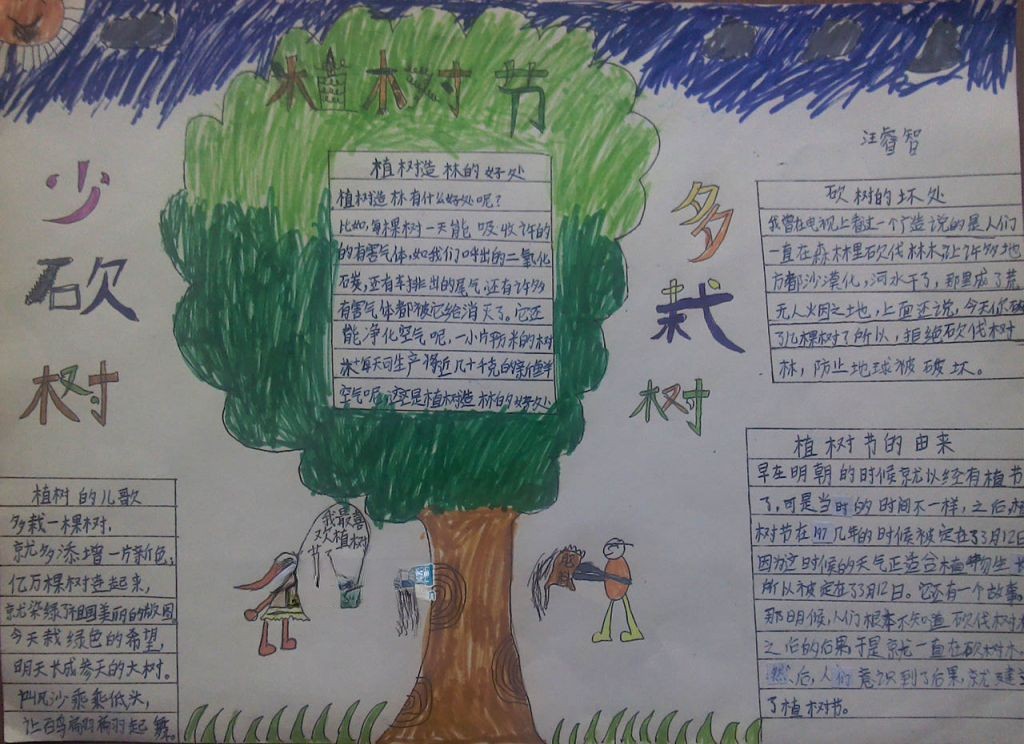 植树节
汪睿智
少砍树
多栽树
植树造林的好处
植树造林有什么好处呢?
比如,每棵树一天能吸收许的
的有害气体,如我们呼出的二氧化
石炭,还有车排出的尾气,还有许多
有害气体都被它给消灭了。它还
能净化空气呢,一小片
每天可生产将近几十千克的新鲜
空气呢,这是植树造林的好处
砍树的坏处
我曾在电视上看过一个广造说的是人们
一直在森林里砍伐林木让许多地
方都沙漠化,河水干了,那里成了荒
无人火因之地,上面还说,今天你砍
了几棵树了所以,拒绝砍伐树
林,防止地球被破坏。
植树节的由来
早在明朝的时候就以经有植节
了,可是当时的时间不一样,之后
树节在 几年的时候被定在了3月12日
因为这时候的天气正造合植物生
所以被定在了3月12日。它还有一个故事
那明候,人们根本不知道砍伐树木
之后的后果于是就一直在砍树木。
然后,人们意识到了后果,就
了植树节。
植树的儿歌
多栽一棵树,
就多添增一片新色;
亿万棵树查起来,
就染绿了祖国美丽的版图
今天栽绿色的希望,
明天长成参天的大树。
叫风沙乖乖低头,
让百鸟翩翩起舞。
我最喜
欢植树
节了